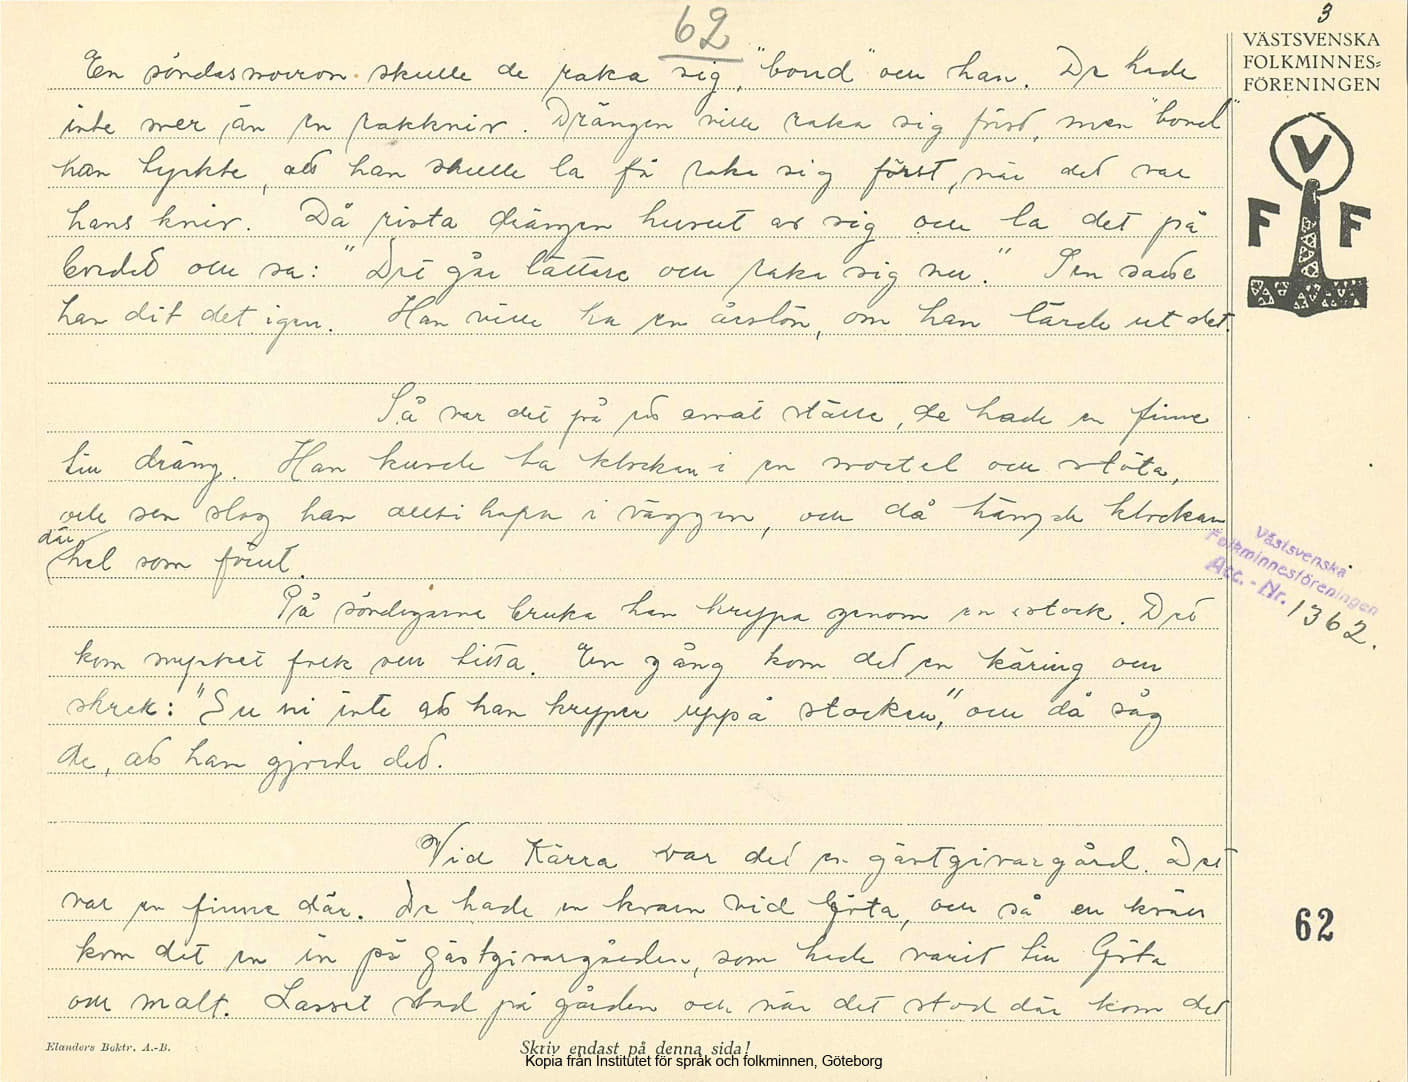 62
3
VÄSTSVENSKA
FOLKMINNES=
FÖRENINGEN
En söndasmorron skulle de raka sig, "bond" och han. De hade
inte mer än en rakkniv. Drängen ville raka sig först, men "bond"
han tyckte, att han skulle la få raka sig först, när det var
hans kniv. Då rista drängen huvut av sig och la det på
bordet och sa: "Det går lättare och raka sig nu." Sen satte
han dit det igen. Han ville ha en årslön, om han lärde ut det.
Så var det på ett annat ställe, de hade en finne
till dräng. Han kunde ta klockan i en mortel och stöta,
och sen slog han allti hopa i väggen, och då hängde klockan
där
hel som förut.
På söndagarna bruka han krypa genom en stock. Det
kom mycket folk och titta. En gång kom det en käring och
skrek: "Ser ni inte att han kryper uppå stocken," och då såg
de, att han gjorde det.
Vid Kärra var det en gästgivargård. Det
var en finne där. De hade en kvarn vid Göta, och så en kväll
kom det en in på gästgivargården, som hade varit till Göta
om malt. Lasset stod på gården och när det stod där kom det
V
F F
Västsvenska
Folkminnesföreningen
Acc. - Nr. 1362.
62
Elanders Boktr. A.-B.
Skriv endast på denna sida!
Kopia från Institutet för språk och folkminnen, Göteborg